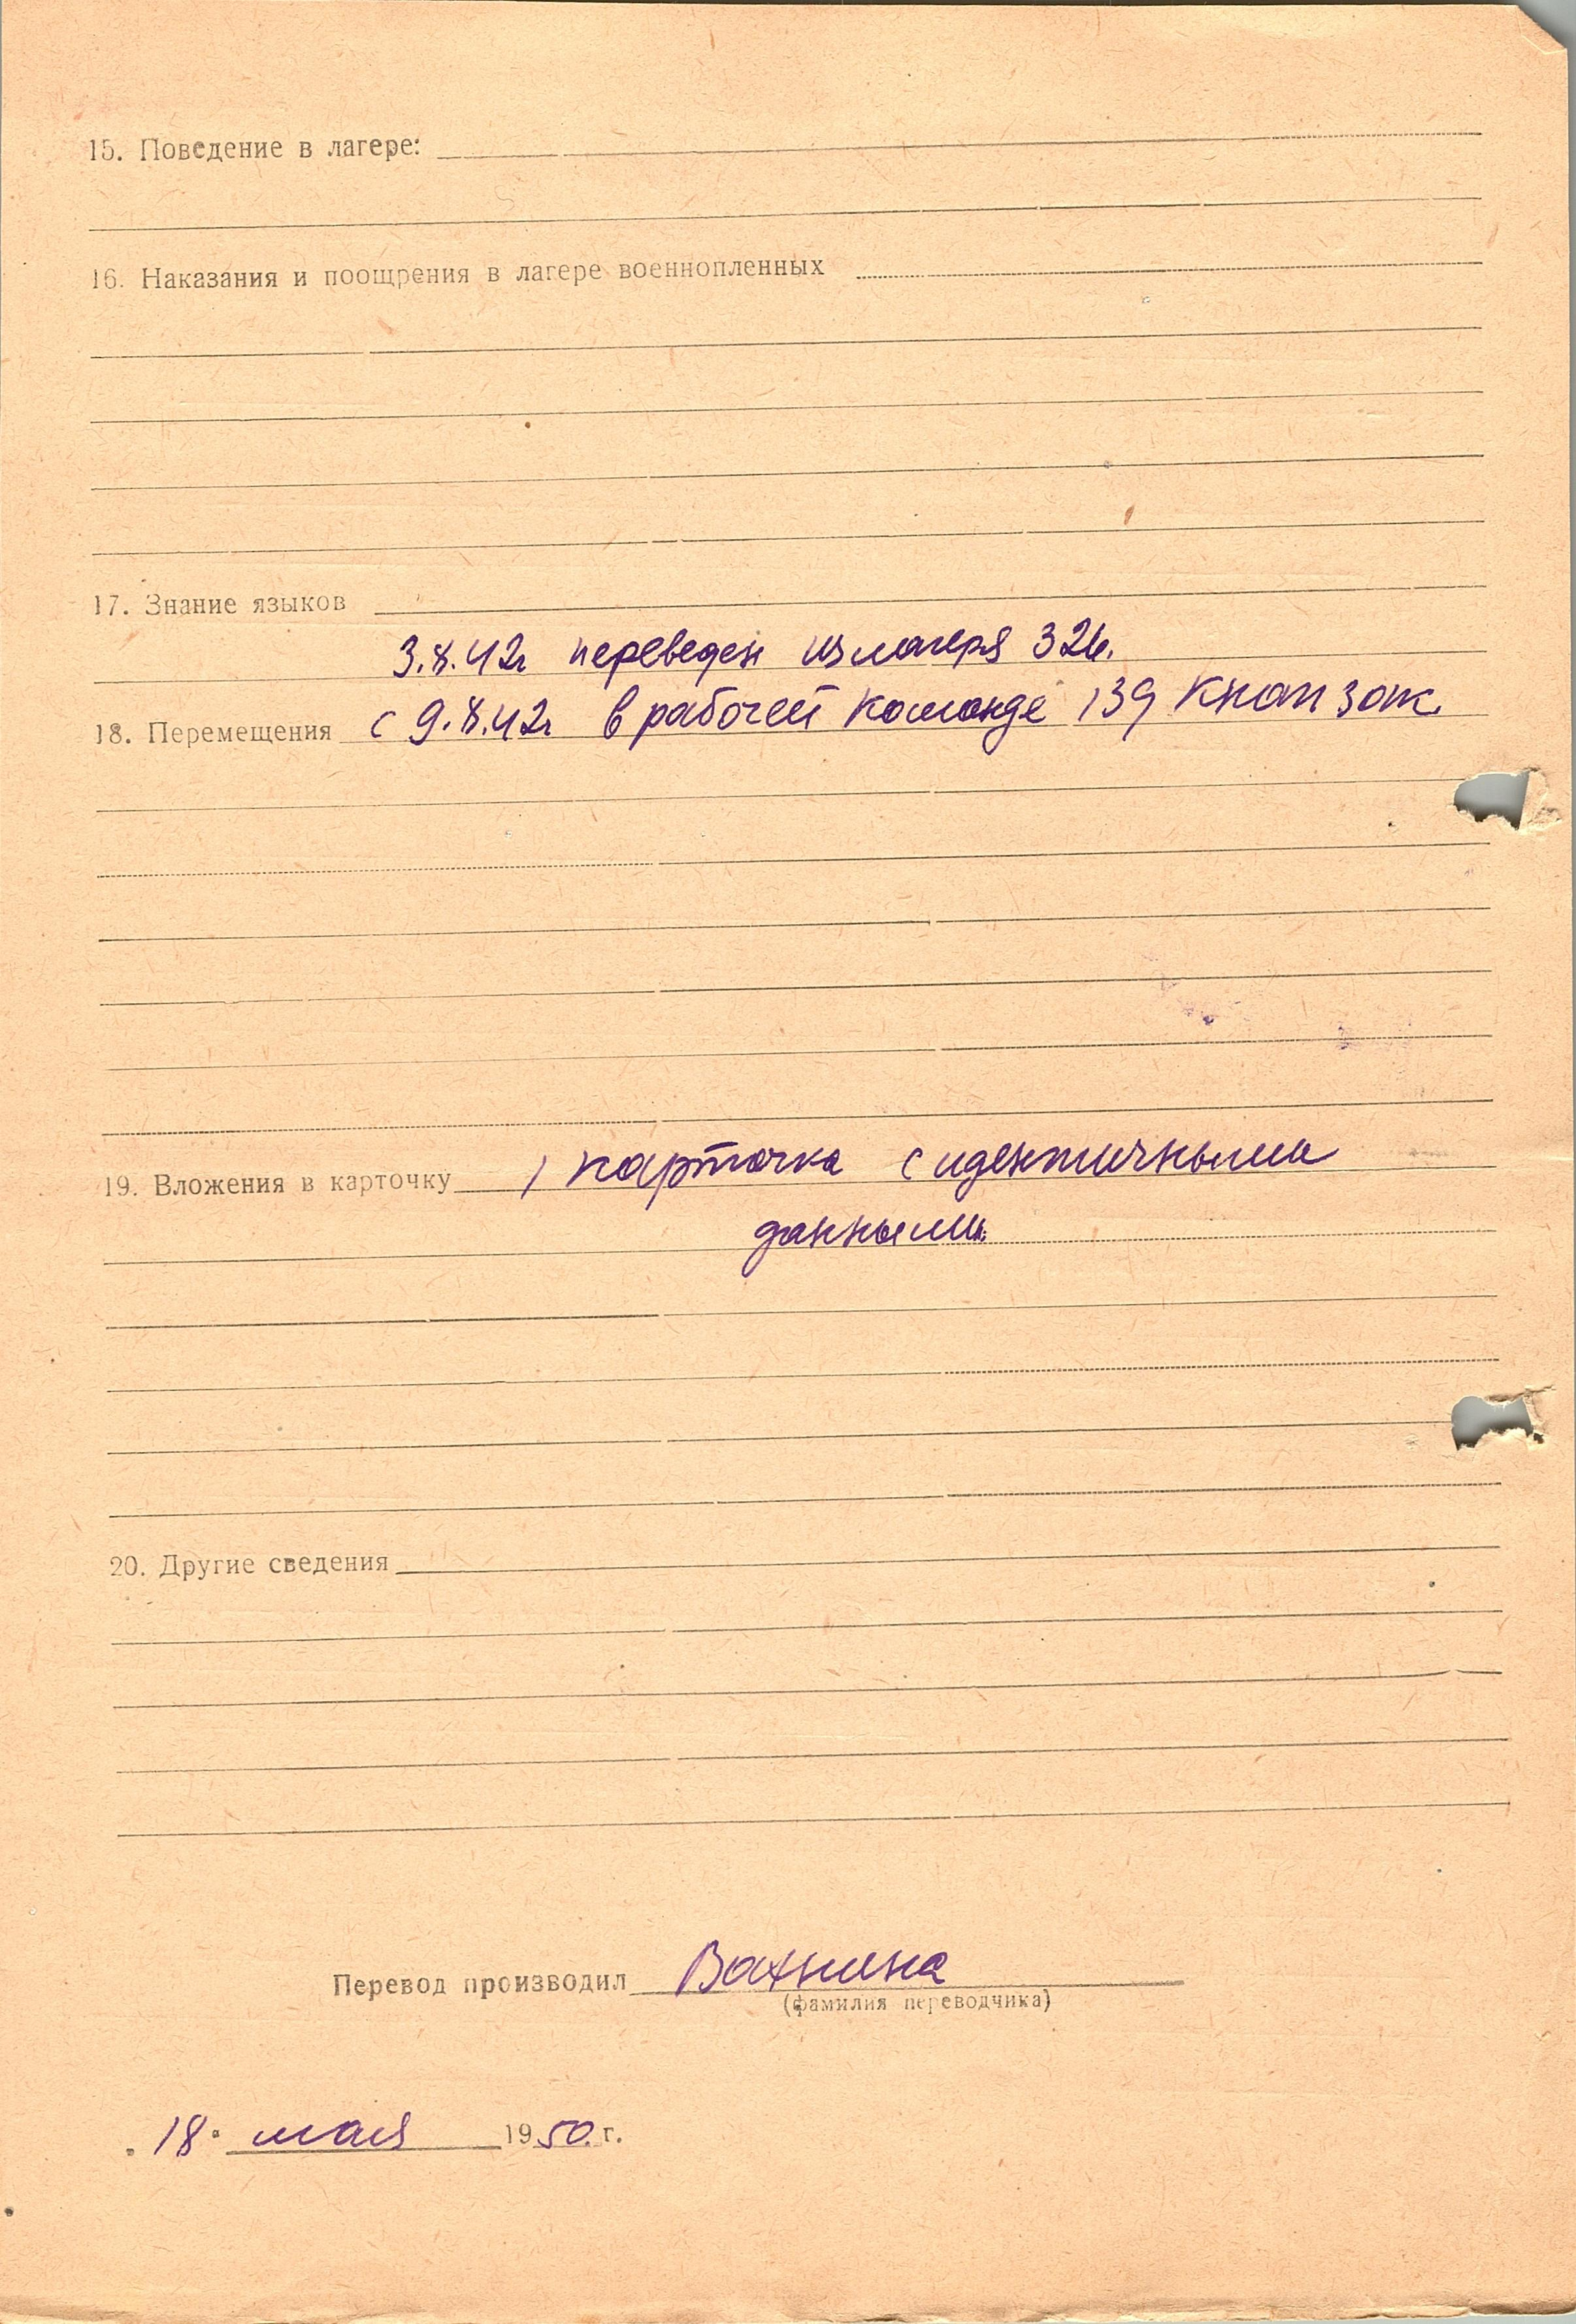 15. Поведение в лагере:
16. Наказания и поощрения в лагере военнопленных
17. Знание языков
3.8.42г переведен из лагеря 326.
18. Перемещения с 9.8.42г в рабочей команде 139
19. Вложения в карточку 1 карточка с идентичными
данными.
20. Другие сведения
Перевод производил Вахнина
(фамилия переводчика)
„18" мая 1950 г.